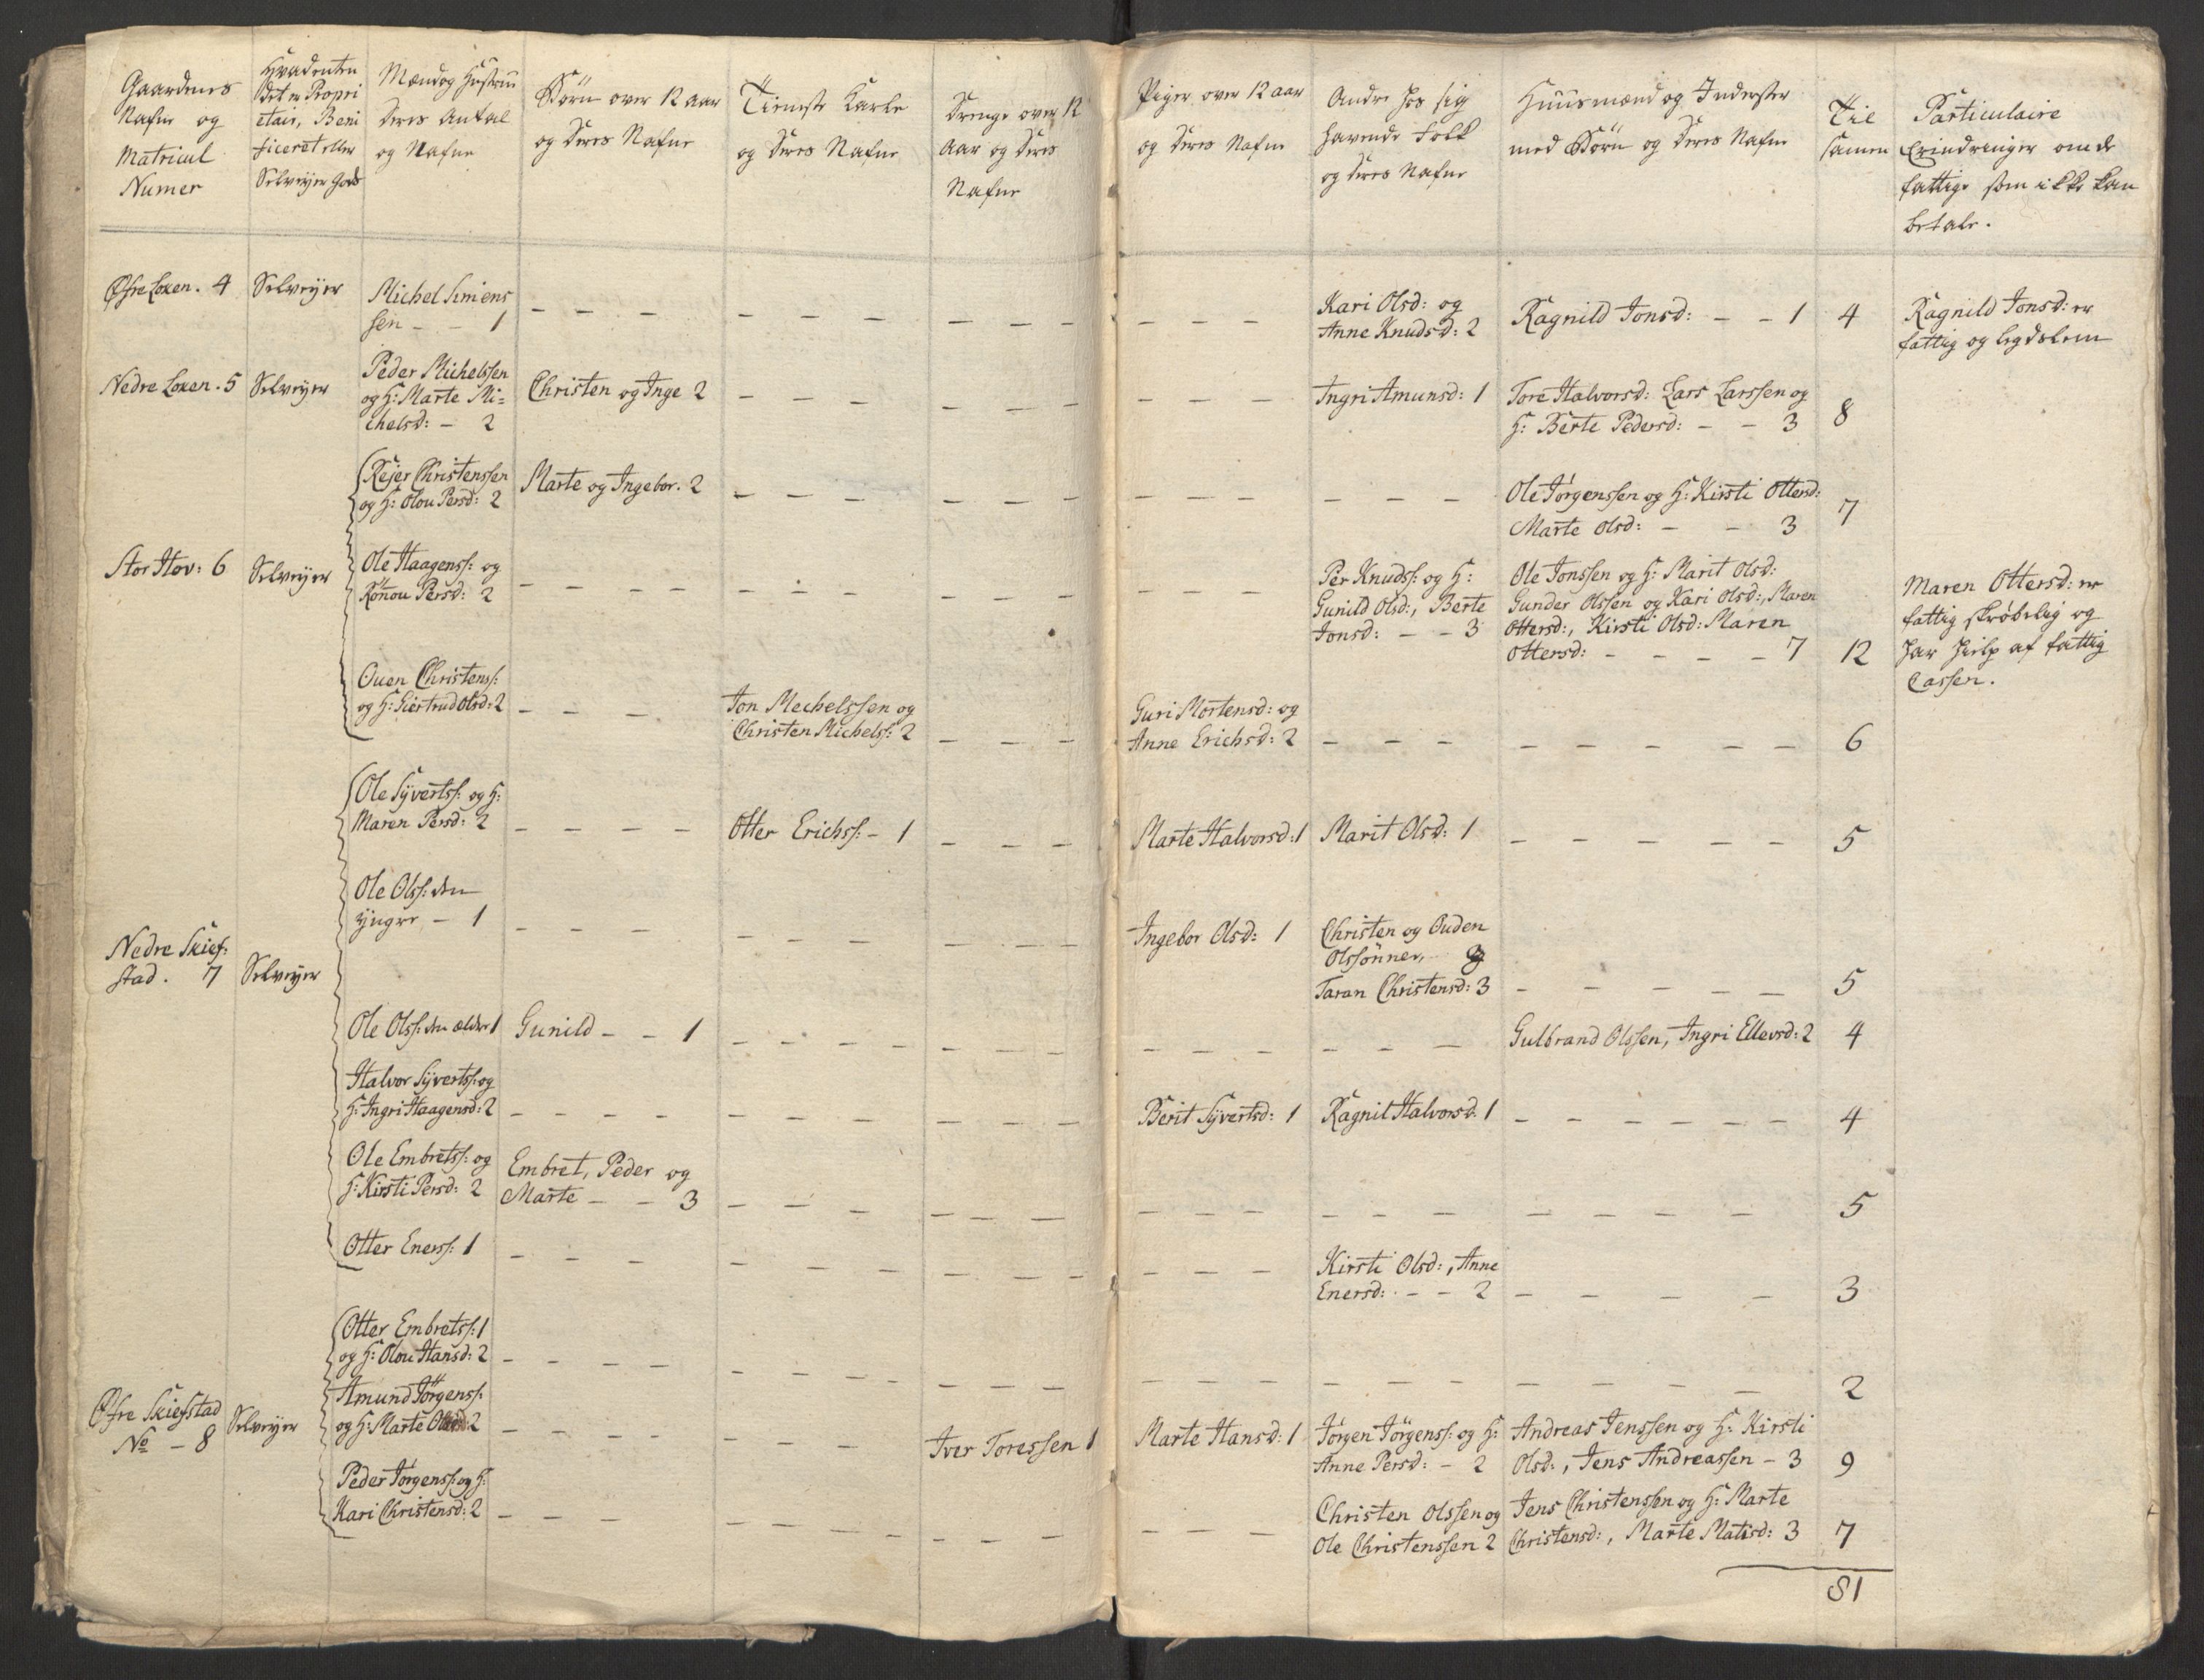 Gaardenes
Nafne og
Matricul
Numer
Hvad enten
det er Propri
etair, Beni
ficeret eller
Selveyer Gods
Mænd og Hustruu
deres Antal
og Nafne
Börn over 12 aar
og deres Nafne
Tieneste Karle
og deres Nafne
Drenge over 12
Aar og deres
Nafne
Piger over 12 aar
og deres Nafne
Andre hos sig
havende Folk
og deres Nafne
Huusmænd og Inderster
med Börn og deres Nafne
Til
samen
Particulaire
Erindringer om de
fattige som ikke kan
betale.
Øfre Loxen. 4 Selveyer Michel Simens
sen - - 1 - - - - - - - - - - - - Kari Olsd: og
Anne Knudsd: 2 Ragnild Jonsd: - - 1 4 Ragnild Jonsd: er
fattig og legdslem
Nedre Loxen. 5 Selveyer Peder Michelssen
og H: Marte Mi=
chelsd: - 2 Christen og Inge 2 - - - - - - - - - Ingri Amunsd: 1 Tore Halvorsd: Lars Larssen og
H: Berte Pedersd: - - 3 8
Rejer Christenssen
og H: Olou Persd: 2 Marte og Ingebor. 2 - - - - - - - - - - - - Ole Jörgenssen og H: Kirsti Ottersd:
Marte Olsd: - - 3 7
Stor Hov: 6 Selveyer Ole Haagenss: og
Rönou Persd: 2 - - - - - - - - - - - - - Per Knudss: og H:
Gunild Olsd:, Berte
Jonsd: - - 3 Ole Jonssen og H: Marit Olsd:
Gunder Olssen og Kari Olsd:, Maren
Ottersd:, Kirsti Olsd: Maren
Ottersd: - - - - 7 12 Maren Ottersd: er
fattig skröbelig og
har hielp af fattig
Cassen.
Ouen Christenss:
og H: Giertrud Olsd: 2 - - - Jon Mechelssen og
Christen Michelss: 2 - - - Guri Mortensd: og
Anne Erichsd: 2 - - - - - - - - - 6
Ole Syvertss: og H:
Maren Persd: 2 - - - - Otter Erichss: - 1 - - - Marte Halvorsd: 1 Marit Olsd: 1 - - - - - 5
Ole Olss: den
yngre - 1 - - - - - - - - - - Ingebor Olsd: 1 Christen og Ouden
Olssönner,
Taran Christensd: 3 - - - - - 5
Nedre Skief:
stad. 7 Selveyer
Ole Olss: den ældre 1 Gunild - - 1 - - - - - - - - - - - - - - Gulbrand Olssen, Ingri Ellevsd: 2 4
Halvor Syvertss: og
H: Ingri Haagensd: 2 - - - - - - - - - - Berit Syvertsd: 1 Ragnil Halvorsd. 1 - - - - - - 4
Ole Embretss: og
H: Kirsti Persd: 2 Embret, Peder og
Marte - - 3 - - - - - - - - - - - - - - - - - 5
Otter Enerss: 1 - - - - - - - - - - - - - - Kirsti Olsd:, Anne
Enersd: - - 2 - - - - 3
Otter Embretss: 1
og H: Olou Hansd: 2 - - - - - - - - - - - - - - - - - - - - 2
Øfre Skiefstad
No - 8 Selveyer
Amund Jörgenss:
og H: Marte 2 - - - - - - - Iver Toressen 1 Marte Hansd: 1 Jörgen Jörgenss: og H:
Anne Persd: - 2 Andreas Jenssen og H: Kirsti
Olsd:, Jens Andreassen - 3 9
Peder Jörgenss: og H:
Kari Christensd: 2 - - - - - - - - - - - - - Christen Olssen og
Ole Christenssen 2 Jens Christenssen og H: Marte
Christensd:, Marte Matisd: 3 7
81